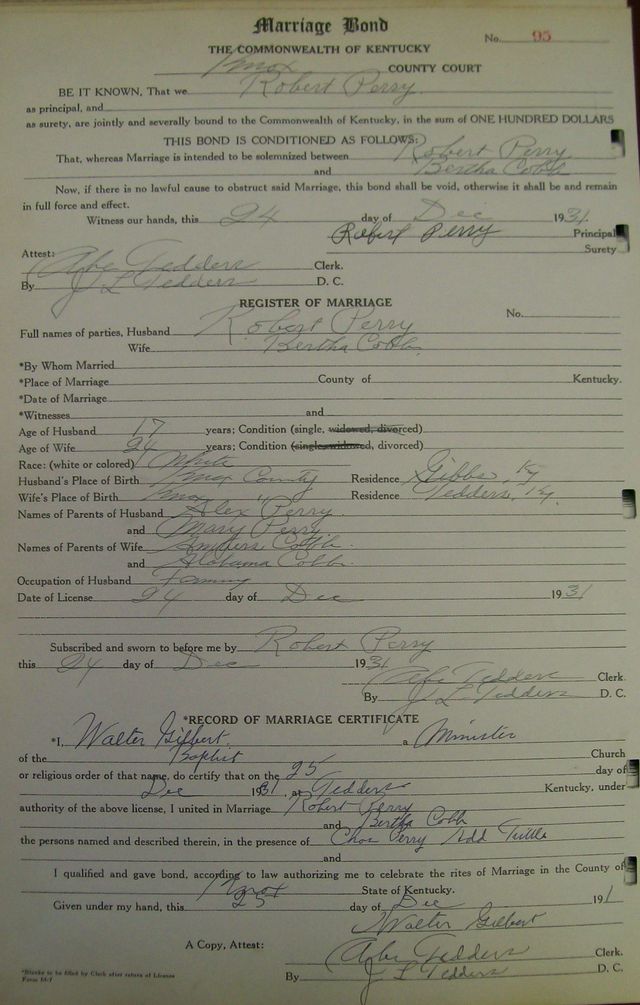 Marriage Bond
No. 95
THE COMMONWEALTH OF KENTUCKY
Knox COUNTY COURT
BE IT KNOWN, That we Robert Perry
as principal, and
as surety, are jointly and severally bound to the Commonwealth of Kentucky, in the sum of ONE HUNDRED DOLLARS
THIS BOND IS CONDITIONED AS FOLLOWS:
That, whereas Marriage is intended to be solemnized between Robert Perry
and Bertha Cobb
Now, if there is no lawful cause to obstruct said Marriage, this bond shall be void, otherwise it shall be and remain
in full force and effect.
Witness our hands, this 24 day of Dec 1931.
Robert Perry Principal
Surety
Attest:
Abe Tedders Clerk.
By J L Tedders D. C.
REGISTER OF MARRIAGE
No.
Full names of parties, Husband Robert Perry
Wife Bertha Cobb
*By Whom Married
*Place of Marriage County of Kentucky.
*Date of Marriage
*Witnesses and
Age of Husband 17 years; Condition (single, widowed, divorced)
Age of Wife 24 years; Condition (single, widowed, divorced)
Race: (white or colored) White
Husband's Place of Birth Knox County Residence Gibbs, Ky
Wife's Place of Birth Knox " Residence Tedders, Ky.
Names of Parents of Husband Alex Perry
and Mary Perry
Names of Parents of Wife Cobb
and Alabama Cobb
Occupation of Husband Farming
Date of License 24 day of Dec 1931
Subscribed and sworn to before me by Robert Perry
this 24 day of Dec 1931
Abe Tedders Clerk.
By J L Tedders D. C.
*RECORD OF MARRIAGE CERTIFICATE
*I, Walter Gilbert a Minister
of the Baptist Church
or religious order of that name, do certify that on the 25 day of
Dec 1931, at Tedders Kentucky, under
authority of the above license, I united in Marriage Robert Perry
and Bertha Cobb
the persons named and described therein, in the presence of Perry Tuttle
and
I qualified and gave bond, according to law authorizing me to celebrate the rites of Marriage in the County of
Knox State of Kentucky.
Given under my hand, this 25 day of Dec 191
Walter Gilbert
A Copy, Attest:
Abe Tedders Clerk.
By J L Tedders D. C.
*Blanks to be filled by Clerk after return of License